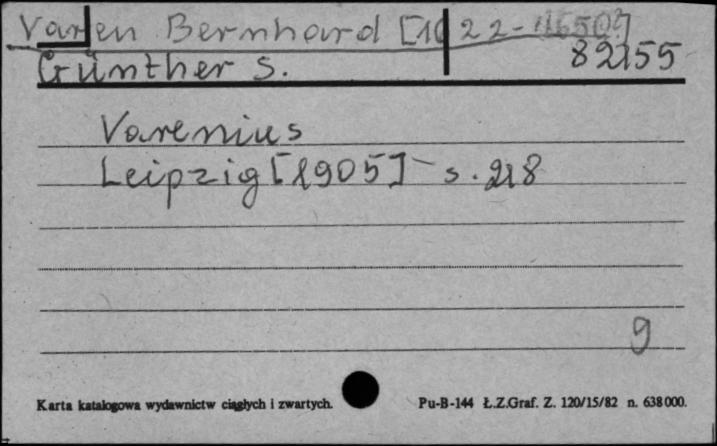 Varen Bernhard [1622-1650?]
Günther S. 82155
Varenius
Leipzig [1905] s. 218
9
Karta katalogowa wydawnictw ciągłych i zwartych. Pu-B-144 Ł.Z.Graf. Z. 120/15/82 n. 638 000.